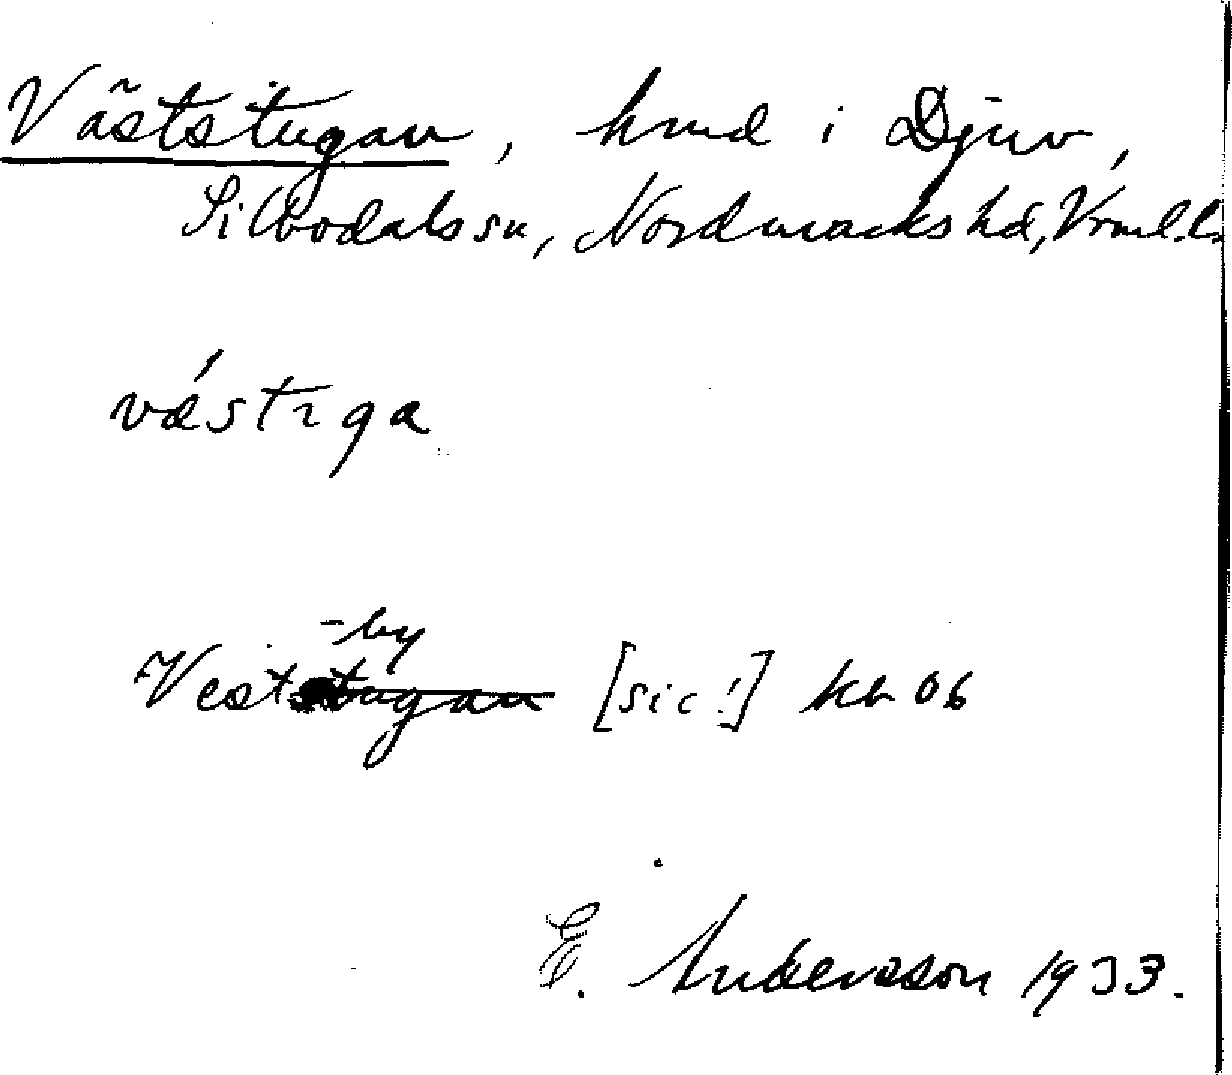 Väststugan, hmd i Djuv,
Silbodals sn, Nordmarks hd, Vrml. l.
vǽstɿga
-by
Veststugan [sic!] kb 06
E. Andersson 1933.